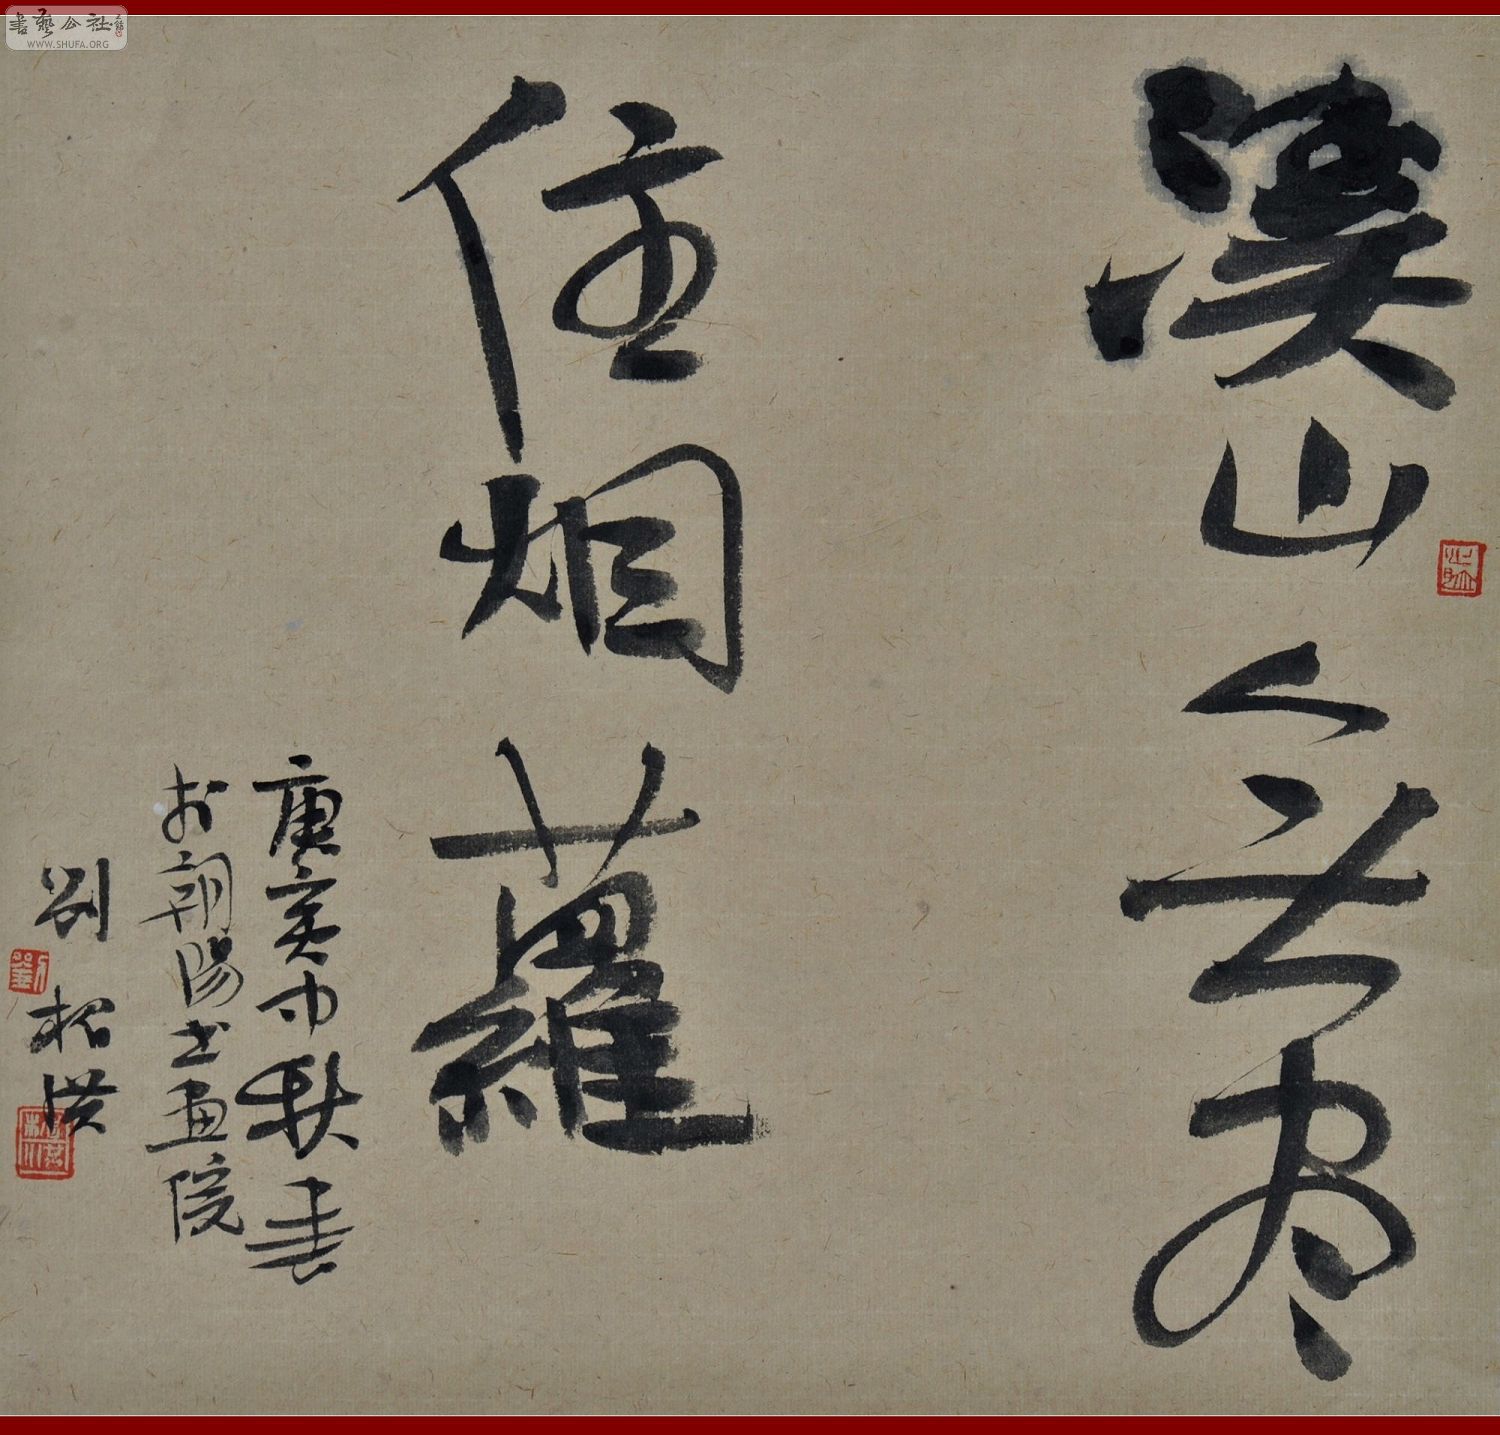 書藝公社
WWW.SHUFA.ORG
溪山無尽
住烟蘿
庚寅中秋書
於朝陽书画院
劉
劉